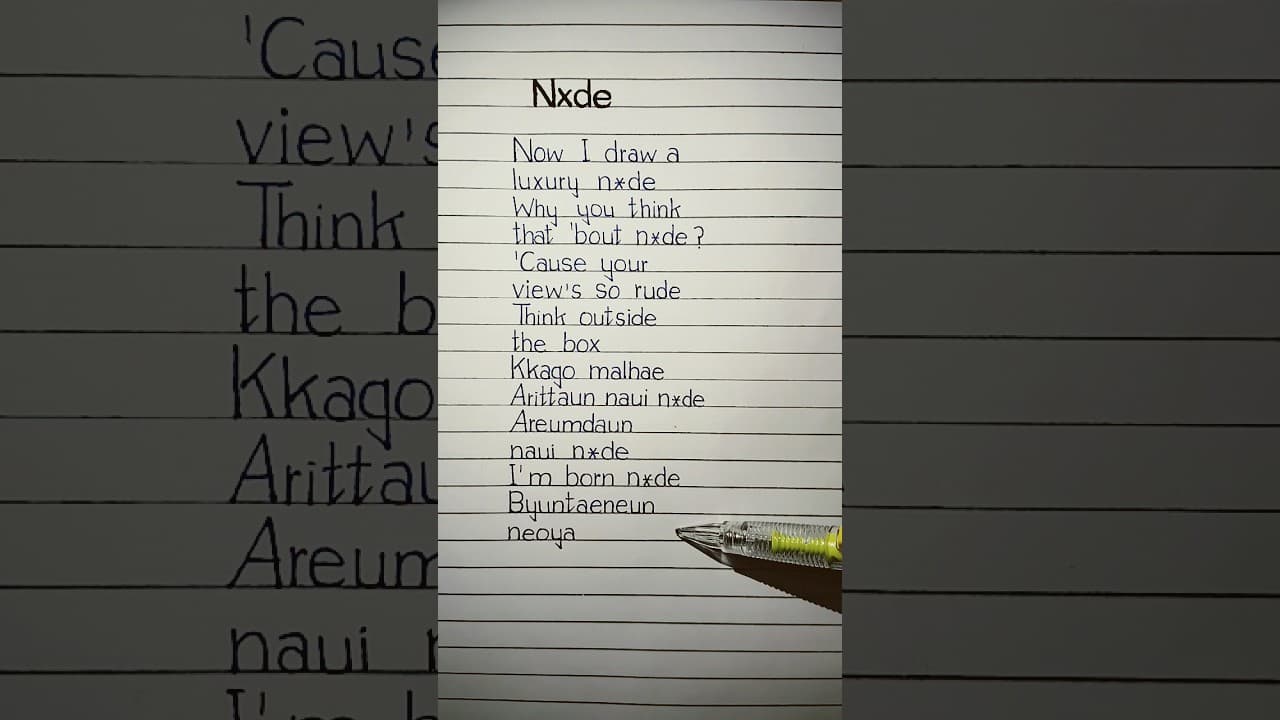 Nxde
Now I draw a
luxury n*de
Why you think
that 'bout n*de?
'Cause your
view's so rude
Think outside
the box
Kkago malhae
Arittaun naui n*de
Areumdaun
naui n*de
I'm born n*de
Byuntaeneun
neoya